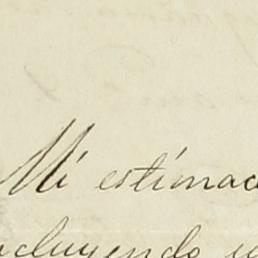 Mi estimad
cluyendo